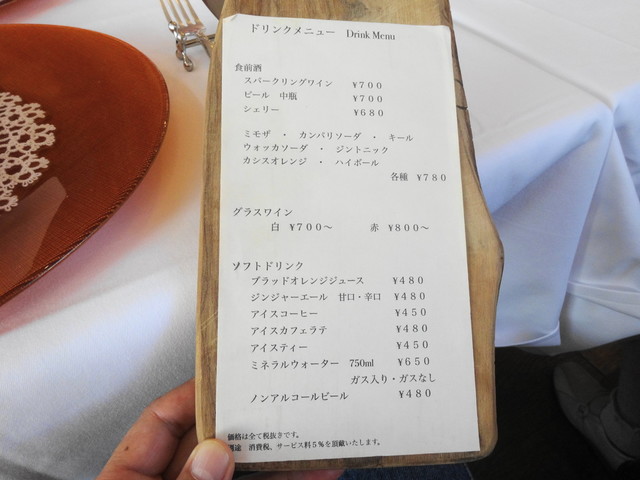 ドリンクメニュー Drink Menu
食前酒
スパークリングワイン ¥700
ビール 中瓶 ¥700
シェリー ¥680
ミモザ ・ カンパリソーダ ・ キール
ウォッカソーダ ・ ジントニック
カシスオレンジ ・ ハイボール
各種 ¥780
グラスワイン
白 ¥700~ 赤 ¥800~
ソフトドリンク
ブラッドオレンジジュース ¥480
ジンジャーエール 甘口・辛口 ¥480
アイスコーヒー ¥450
アイスカフェラテ ¥480
アイスティー ¥450
ミネラルウォーター 750ml ¥650
ガス入り・ガスなし
ノンアルコールビール ¥480
価格は全て税抜きです。
別途 消費税、サービス料5%を頂戴いたします。